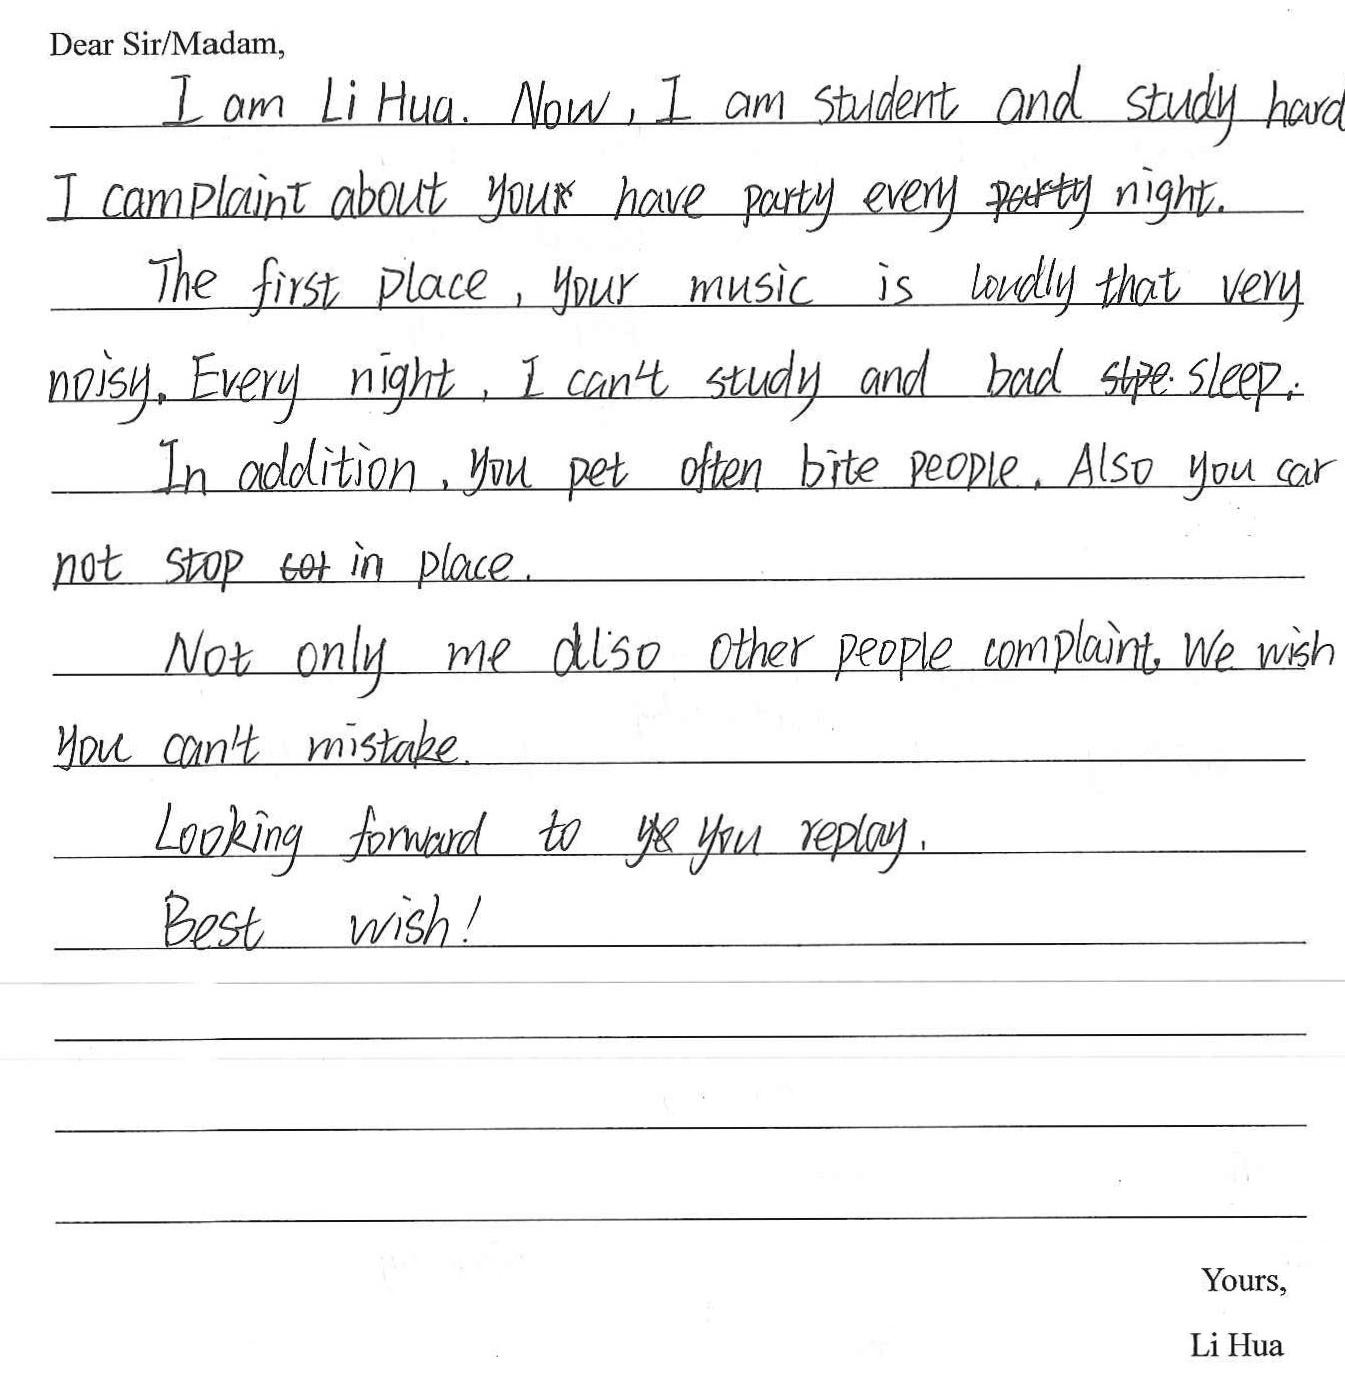 Dear Sir/Madam,
I am Li Hua. Now, I am student and study hard
I camplaint about you have party every night.
The first place, your music is loudly that very
noisy. Every night, I can't study and bad sleep.
In addition, you pet often bite people. Also you car
not stop in place.
Not only me also other people complaint. We wish
you can't mistake.
Looking forward to you replay.
Best wish!
Yours,
Li Hua